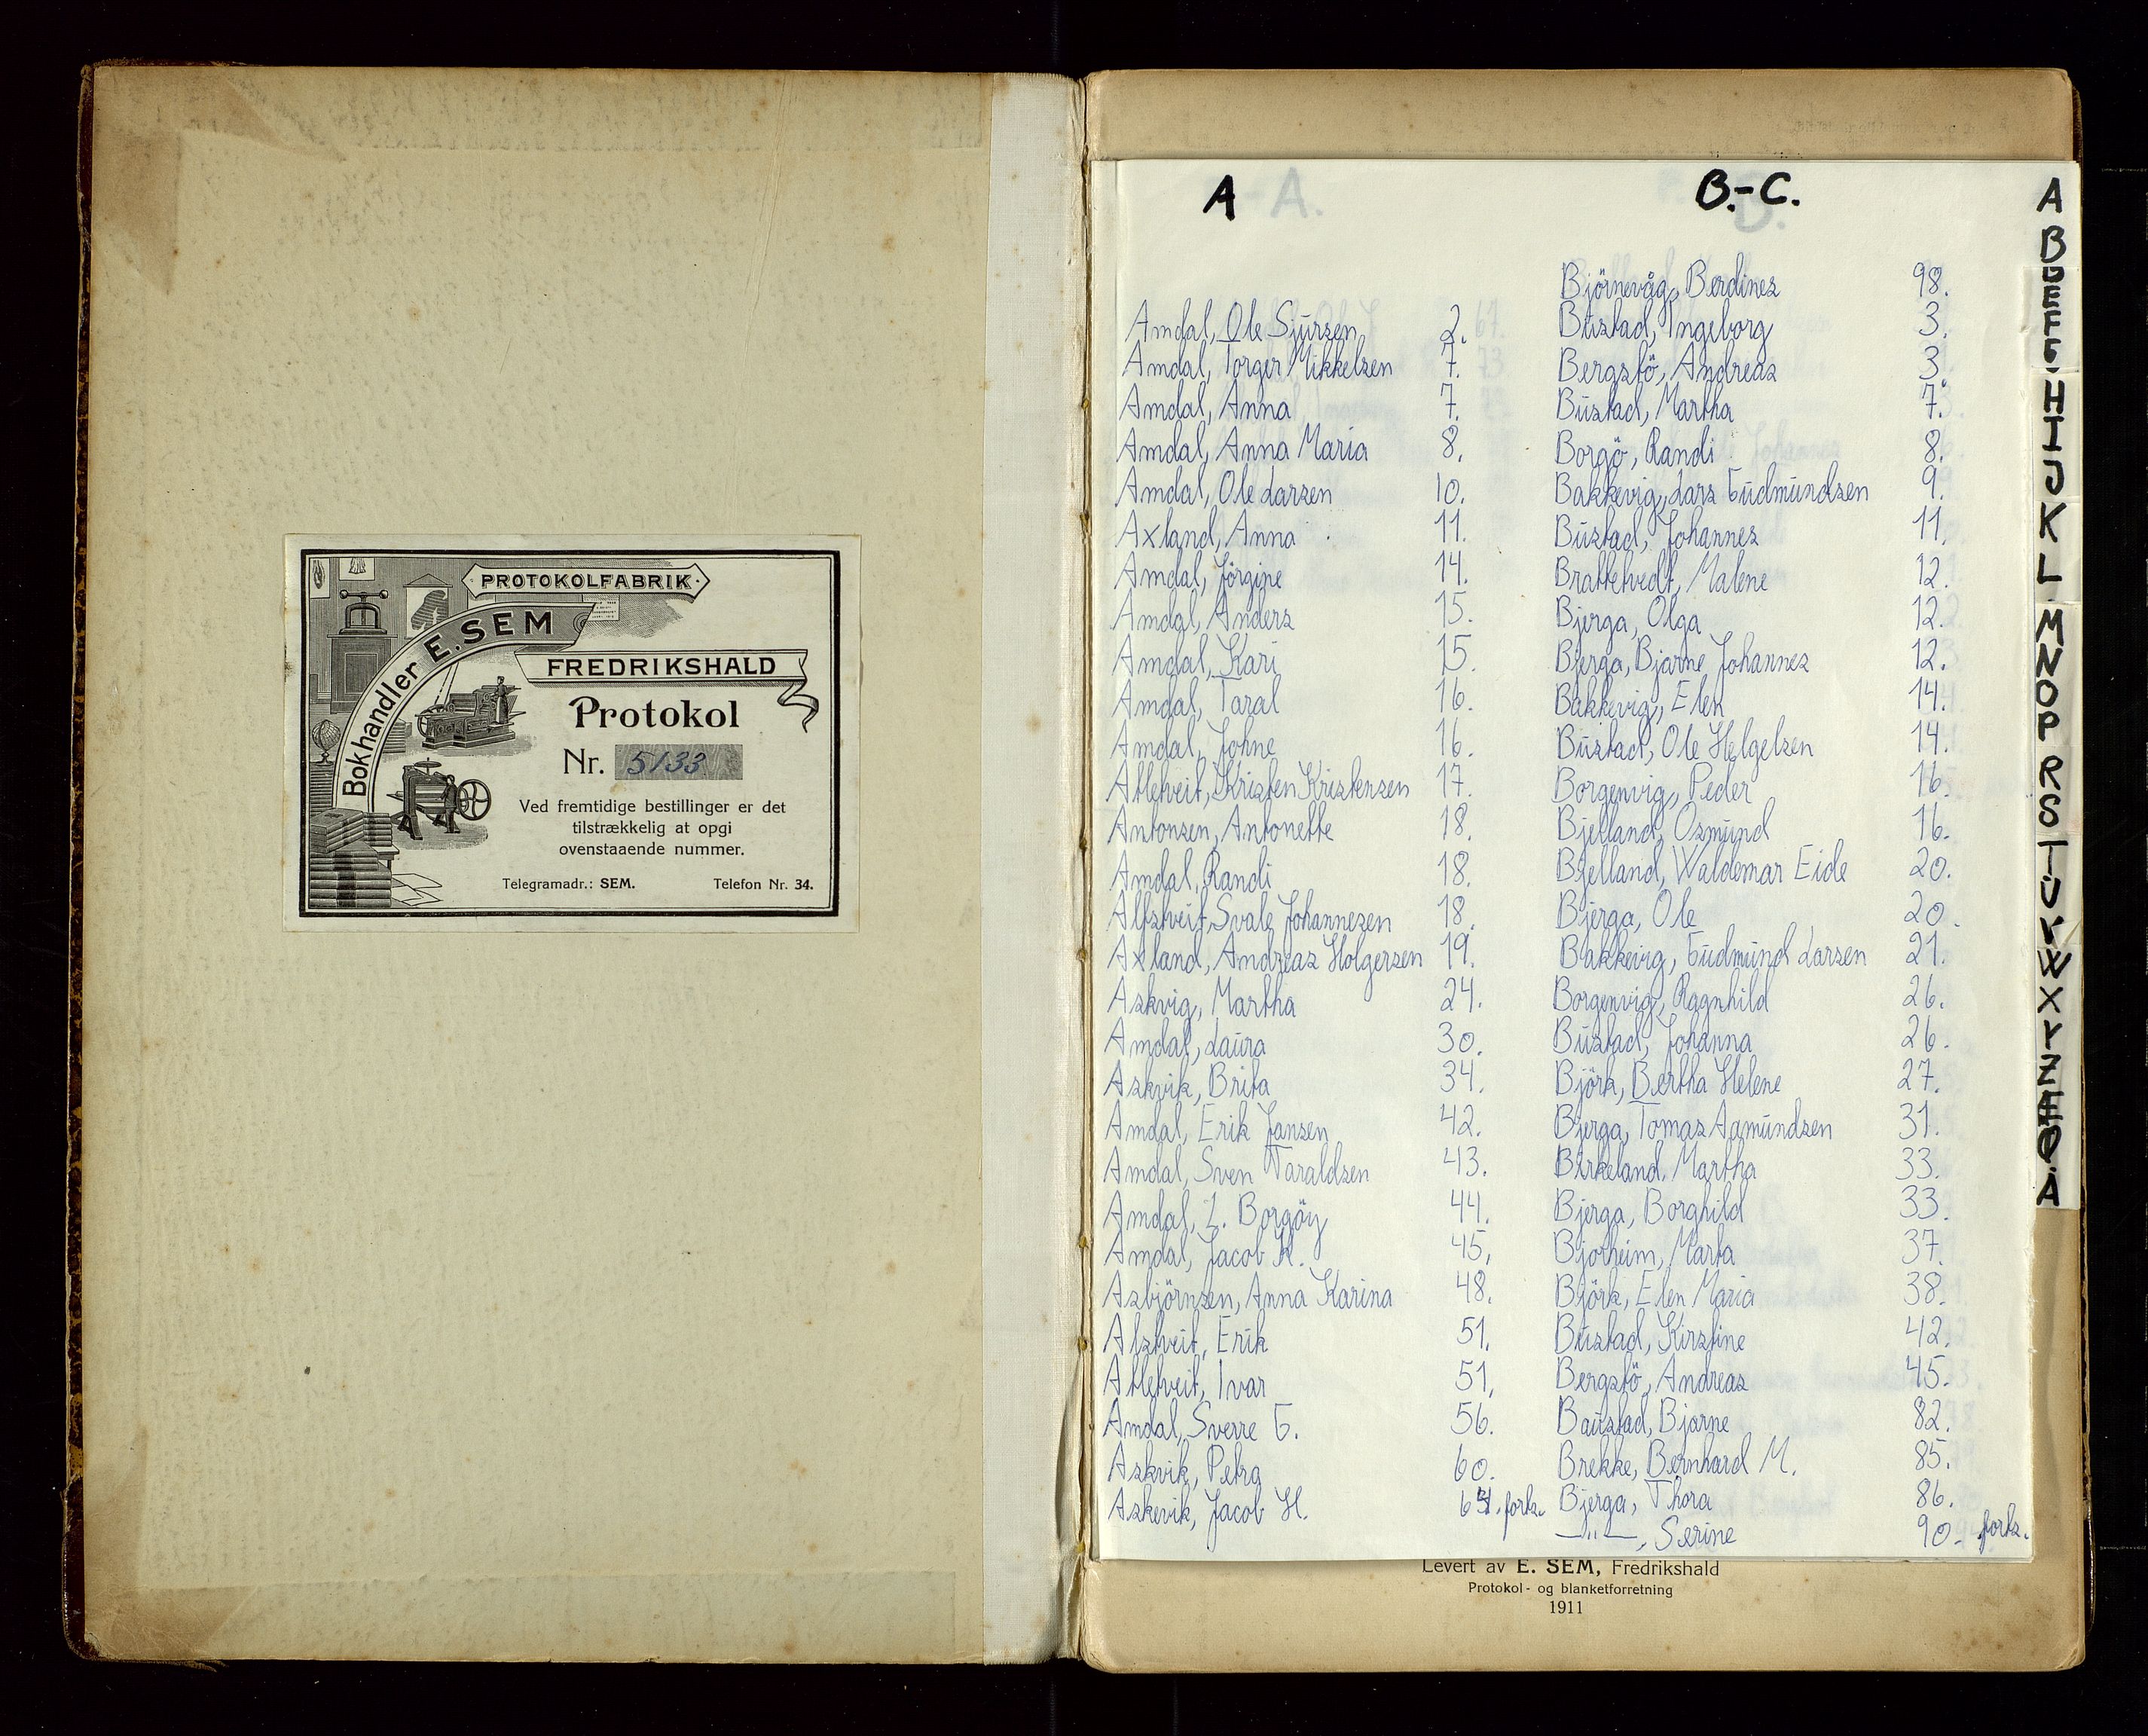 PROTOKOLFABRIK
Bokhandler E. SEM
FREDRIKSHALD
Protokol
Nr. 5133
Ved fremtidige bestillinger er det
tilstrækkelig at opgi
ovenstaaende nummer.
Telegramadr.: SEM. Telefon Nr. 34.
A
Amdal, Ole Sjursen 2.
Amdal, Torger Mikkelsen 7.
Amdal, Anna 7.
Amdal, Anna Maria 8.
Amdal, Ole Larsen 10.
Axland, Anna 11.
Amdal, Jörgine 14.
Amdal, Anders 15.
Amdal, Kari 15.
Amdal, Taral 16.
Amdal, Johne 16.
Atletveit, Kristen Kristensen 17.
Antonsen, Antonette 18.
Amdal, Randi 18.
Alfstveit, Svale Johannesen 18.
Axland, Andreas Holgersen 19.
Askvig, Martha 24.
Amdal, Laura 30.
Askvik, Brita 34.
Amdal, Erik Jansen 42.
Amdal, Sven Taraldsen 43.
Amdal, L. Borgöy 44.
Amdal, Jacob K. 45.
Asbjörnsen, Anna Karina 48.
Alstveit, Erik 51.
Atletveit, Ivar 51.
Amdal, Sverre G. 56.
Askvik, Petra 60.
Askevik, Jacob H. forts.
B.-C.
Björnevåg, Berdines 98.
Bustad, Ingeborg 3.
Bergstö, Andreas 3.
Bustad, Martha 7.
Borgö, Randi 8.
Bakkevig, Lars Gudmundsen 9.
Bustad, Johannes 11.
Brattetvedt, Malene 12.
Bjerga, Olga 12.
Bjerga, Bjarne Johannes 12.
Bakkevig, Elen 14.
Bustad, Ole Helgelsen 14.
Borgenvig, Peder 16.
Bjelland, Osmund 16.
Bjelland, Waldemar Eide 20.
Bjerga, Ole 20.
Bakkevig, Gudmund Larsen 21.
Borgenvig, Ragnhild 26.
Bustad, Johanna 26.
Björk, Bertha Helene 27.
Bjerga, Tomas Aamundsen 31.
Birkeland, Martha 33.
Bjerga, Borghild 33.
Bjorheim, Marta 37.
Björk, Elen Maria 38.
Bustad, Kirstine 42.
Bergstö, Andreas 45.
Baustad, Bjarne 82.
Brekke, Bernhard M. 85.
Bjerga, Thora 86.
—"—, Serine 90. forts.
A
B
D
E
F
G
H
I
J
K
L
M
N
O
P
R
S
T
U
V
W
X
Y
Z
Æ
Ø
Å
Levert av E. SEM, Fredrikshald
Protokol- og blanketforretning
1911